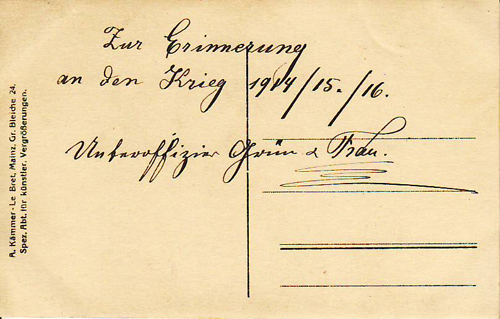 Zur Erinnerung
an den Krieg 1914/15./16.
Unteroffizier Grün & Frau.
A. Kämmer-Le Bret, Mainz, Gr. Bleiche 24.
Spez. Abt. für künstler. Vergrößerungen.